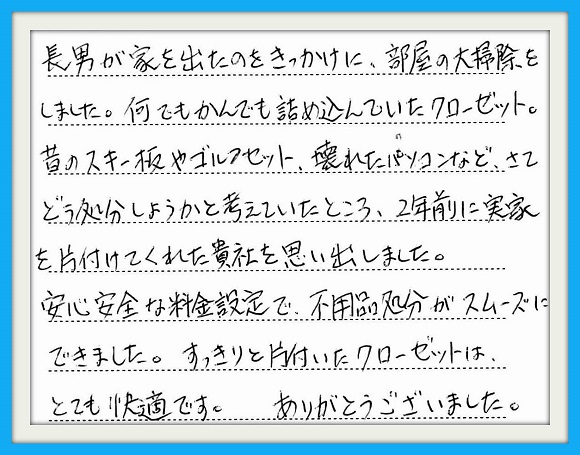 長男が家を出たのをきっかけに、部屋の大掃除を
しました。何でもかんでも詰め込んでいたクローゼット。
昔のスキー板やゴルフセット、壊れたパソコンなど、さて
どう処分しようかと考えていたところ、2年前に実家
を片付けてくれた貴社を思い出しました。
安心安全な料金設定で、不用品処分がスムーズに
できました。すっきりと片付いたクローゼットは、
とても快適です。 ありがとうございました。